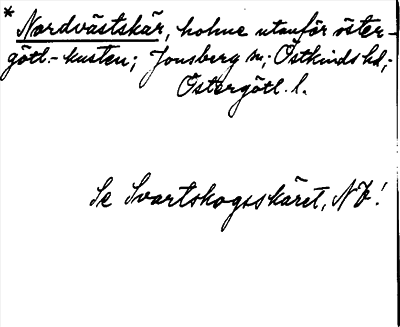 * Nordvästskär, holme utanför öster-
götl.-kusten; Jonsberg sn; Östkinds hd;-
Östergötl. l.
Se Svartskogsskäret, NV!